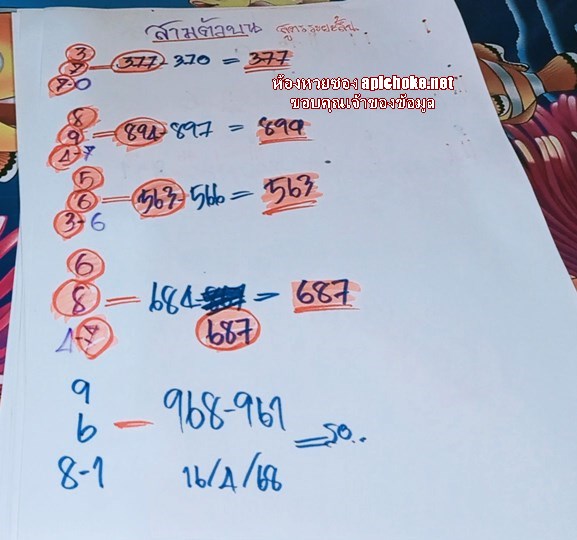 สามตัวบน สูตรระยะสั้น
3
7 — 377-370 = 377
7-0
ห้องหวยซอง apichoke.net
ขอบคุณเจ้าของข้อมุล
8
9 — 894-897 = 894
4-7
5
6 — 563-566 = 563
3-6
6
8 — 684- = 687
4-7 687
9
6 — 968-961 = รอ..
8-1 16/4/68